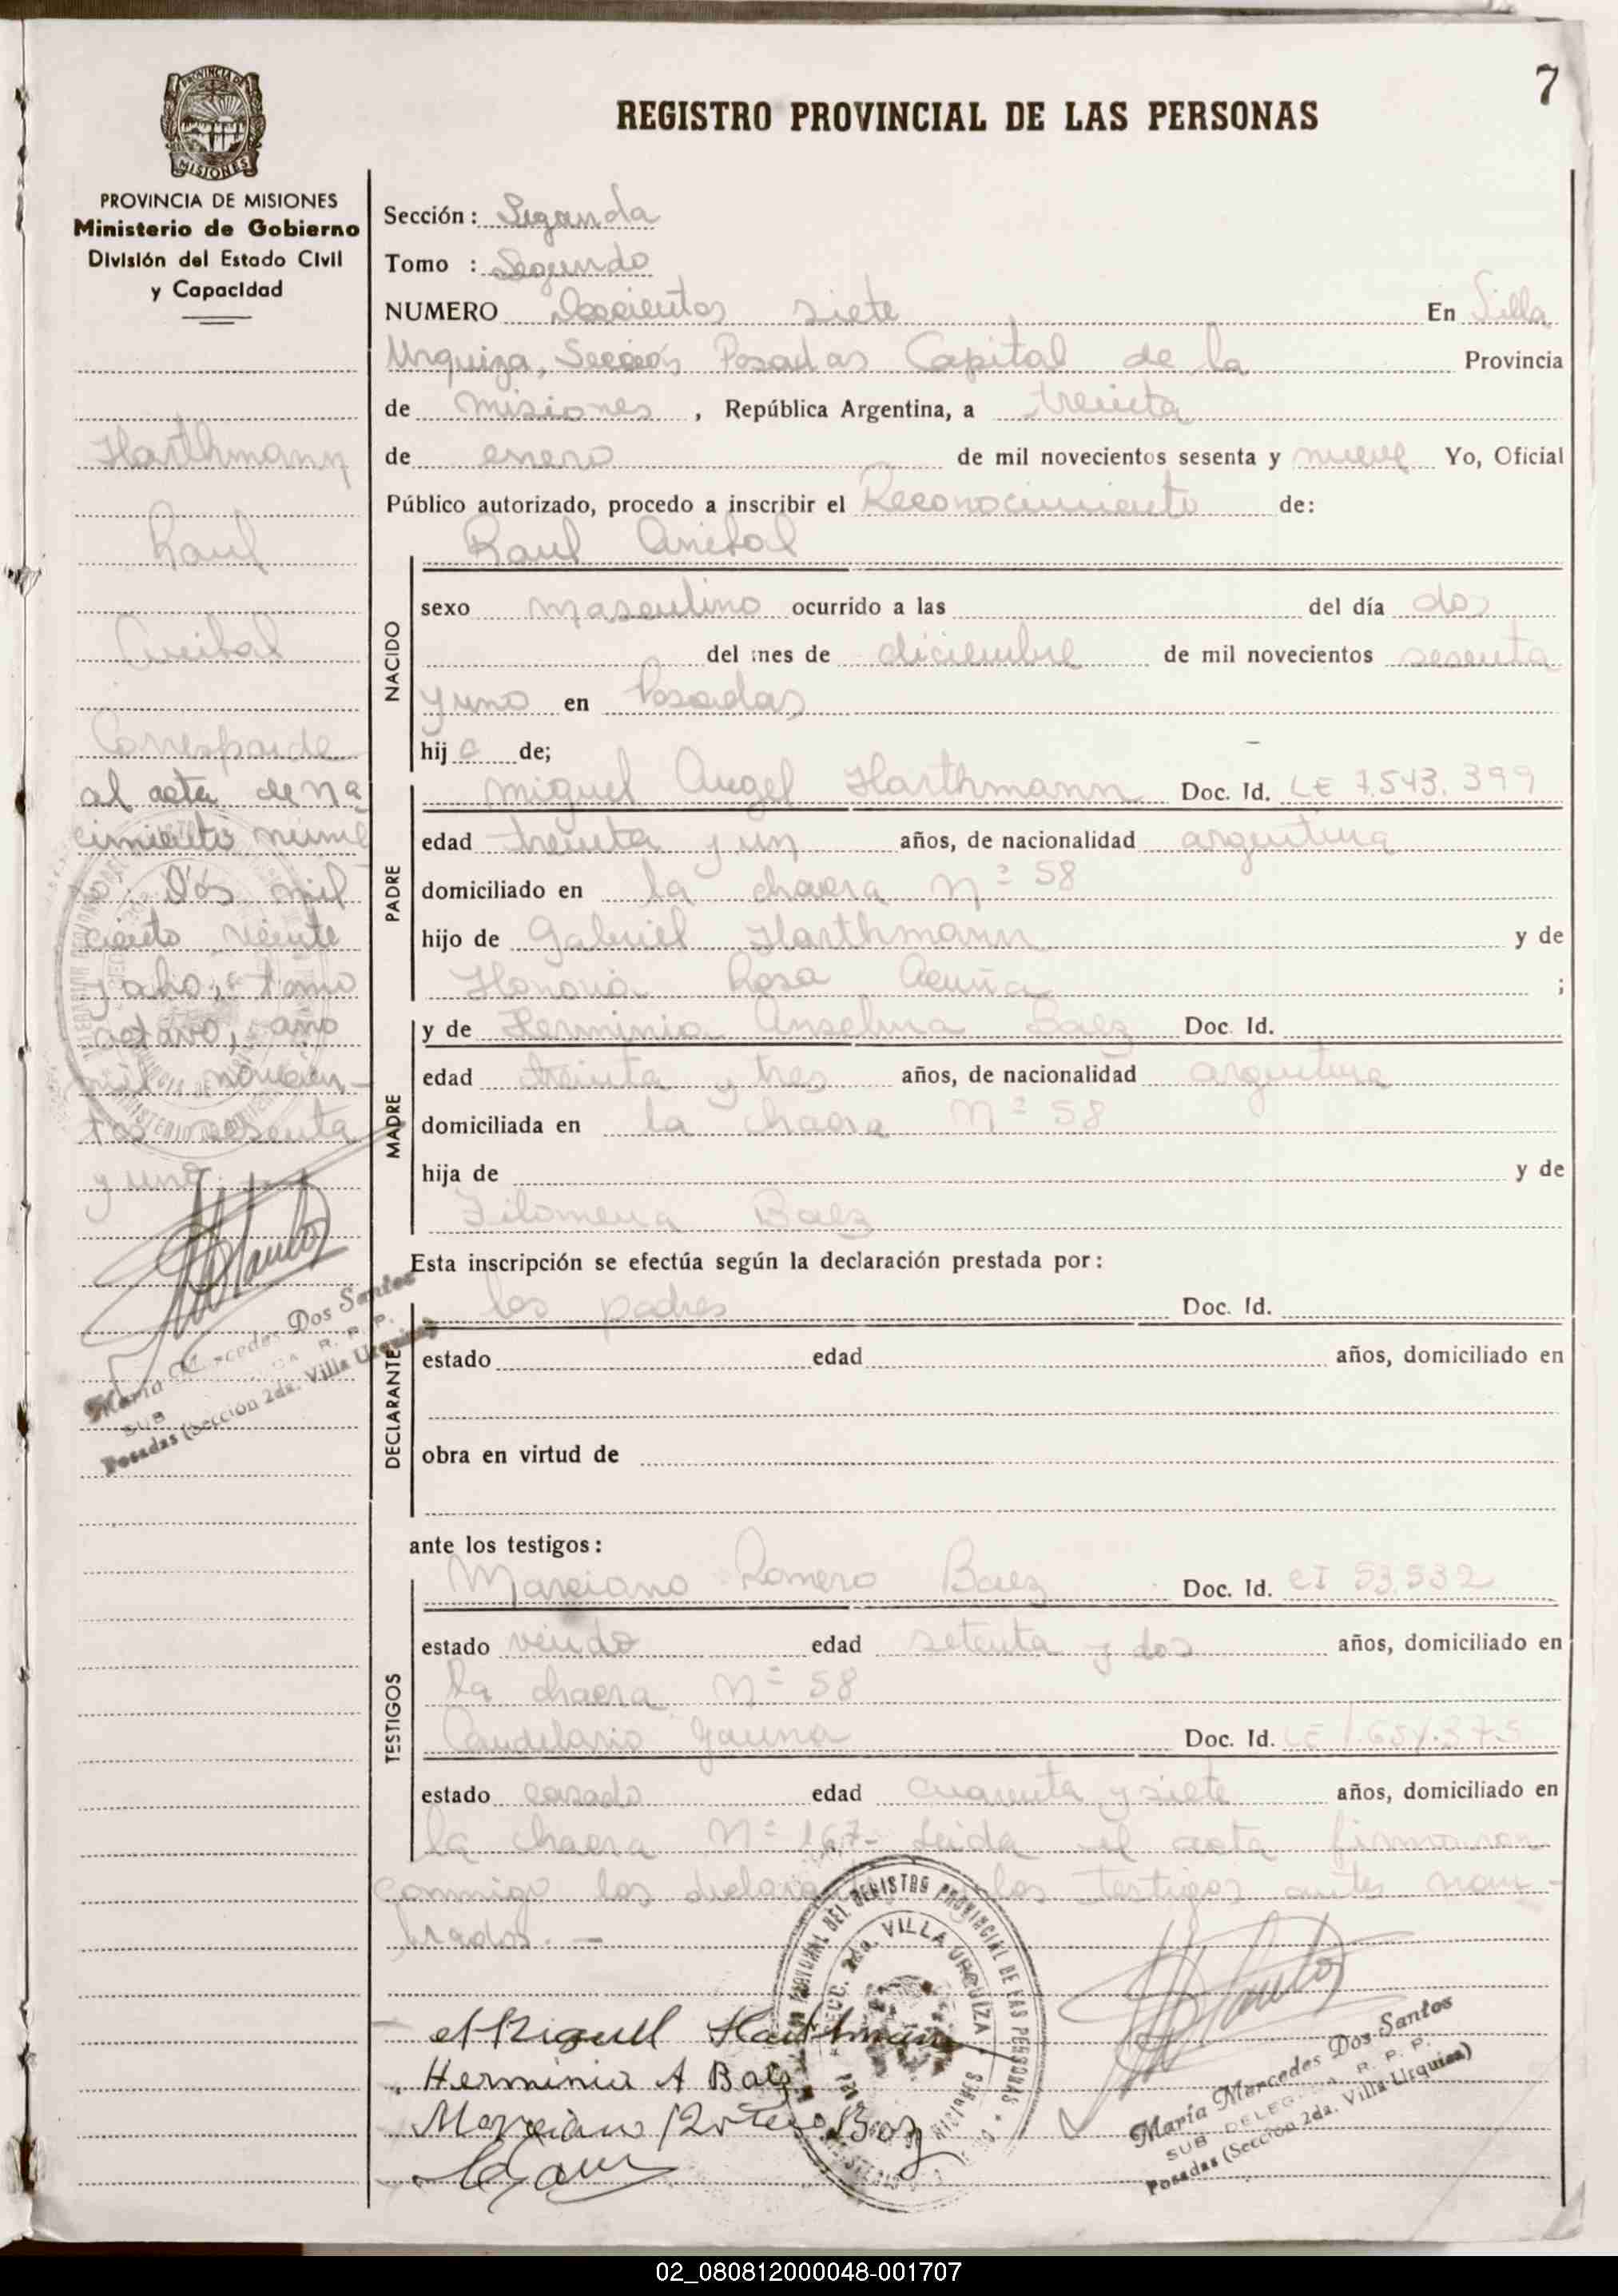 7
REGISTRO PROVINCIAL DE LAS PERSONAS
PROVINCIA DE MISIONES
MISIONES
PROVINCIA DE MISIONES
Ministerio de Gobierno
División del Estado Civil
y Capacidad
Harthmann
Raul
Anibal
Corresponde
al acta de na
cimiento nume
ro: Dos mil
ciento veinte
y ocho, tomo
octavo, año
mil novecien-
tos sesenta
y uno.
María Mercedes Dos Santos
SUB R. P. P.
Posadas (Sección 2da. Villa Urquiza)
Sección: Segunda
Tomo : Segundo
NUMERO Doscientos siete En Villa
Urquiza, Sección Posadas Capital de la Provincia
de Misiones , República Argentina, a treinta
de enero de mil novecientos sesenta y nueve Yo, Oficial
Público autorizado, procedo a inscribir el Reconocimiento de:
Raul Anibal
NACIDO
sexo masculino ocurrido a las del día dos
del mes de diciembre de mil novecientos sesenta
y uno en Posadas
hij o de;
PADRE
Miguel Angel Harthmann Doc. Id. LE 7.543.399
edad treinta y un años, de nacionalidad argentina
domiciliado en la chacra Nº 58
hijo de Gabriel Harthmann y de
Honoria Rosa Acuña ;
MADRE
y de Herminia Anselma Baez Doc. Id.
edad treinta y tres años, de nacionalidad argentina
domiciliada en la chacra Nº 58
hija de y de
Filomena Baez
Esta inscripción se efectúa según la declaración prestada por:
DECLARANTE
los padres Doc. Id.
estado edad años, domiciliado en
obra en virtud de
ante los testigos:
TESTIGOS
Marciano Romero Baez Doc. Id. CI 53.532
estado viudo edad setenta y dos años, domiciliado en
la chacra Nº 58
Candelario Gauna Doc. Id. LE 1.654.375
estado casado edad cuarenta y siete años, domiciliado en
la chacra Nº 167- Leida el acta firmaron
conmigo los los testigos antes nom-
brados. —
Miguel Harthmann
Herminia A Baez
Marciano Romero Baez
REGISTRO PROVINCIAL DE LAS PERSONAS
SECC. 2da. VILLA URQUIZA
María Mercedes Dos Santos
SUB DELEGADA R. P. P.
Posadas (Sección 2da. Villa Urquiza)
02_080812000048-001707